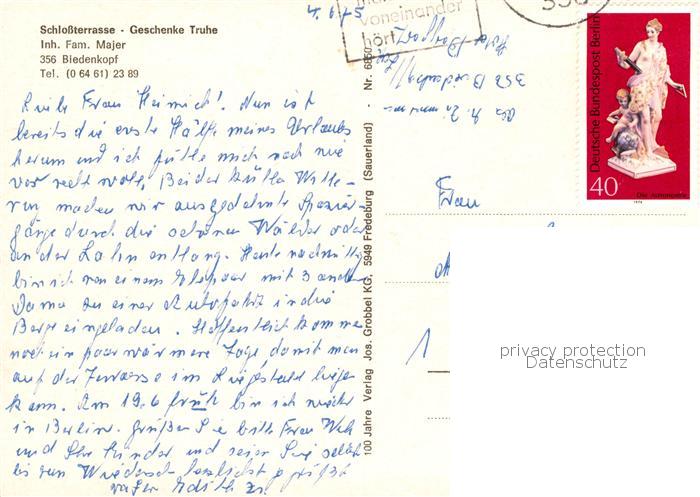 4.6.75
voneinander
hört
356
Schloßterrasse · Geschenke Truhe
Inh. Fam. Majer
356 Biedenkopf
Tel. (0 64 61) 23 89
Liebe Frau Heimich! Nun ist
bereits die erste Hälfte meines Urlaubs
herum und ich fühle mich nach wie
vor recht wohl. Bei der kühlen Witte-
rung machen wir ausgedehnte Spazier-
gänge durch die schönen Wälder oder
an der Lahn entlang. Heute nachmittag
bin ich von einem Ehepaar mit 3 anderen
Damen zu einer Autofahrt in die
Berge eingeladen. Hoffentlich kommen
noch ein paar wärmere Tage, damit man
auf der Terrasse im Liegestuhl liegen
kann. Am 19.6 früh bin ich wieder
in Berlin. Grüßen Sie bitte Frau
und Ihre Kinder und seien Sie selbst
bis zum Wiedersehn herzlichst gegrüßt
Edith
100 Jahre Verlag Jos. Grobbel KG, 5949 Fredeburg (Sauerland) · Nr. 6850
Abs.
356 Biedenkopf/Lahn
Frau
1
Deutsche Bundespost Berlin
40
Die Astronomie
1974
privacy protection
Datenschutz